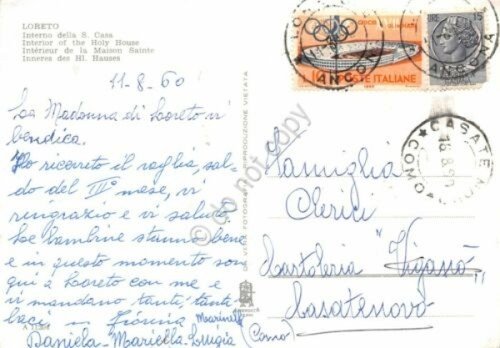 LORETO
Interno della S. Casa
Interior of the Holy House
Intérieur de la Maison Sainte
Inneres des Hl. Hauses
11-8-60
La Madonna di Loreto vi
bendica.
Ho ricevuto il vaglia, sal-
do del IIº mese, vi
ringrazio e vi saluto.
Le bambine stanno bene
e in questo momento son
qui a Loreto con me e
vi mandano tanti, tanti
baci
Marinella
Daniela - Mariella - Luigia
DA VERA FOTOGRAFIA
RIPRODUZIONE VIETATA
do not copy
GIOCHI
POSTE ITALIANE
15
ANCONA
ANCONA
CASATENOVO
COMO
Famiglia
Clerici
Cartoleria "Viganò"
Casatenovo
(Como)